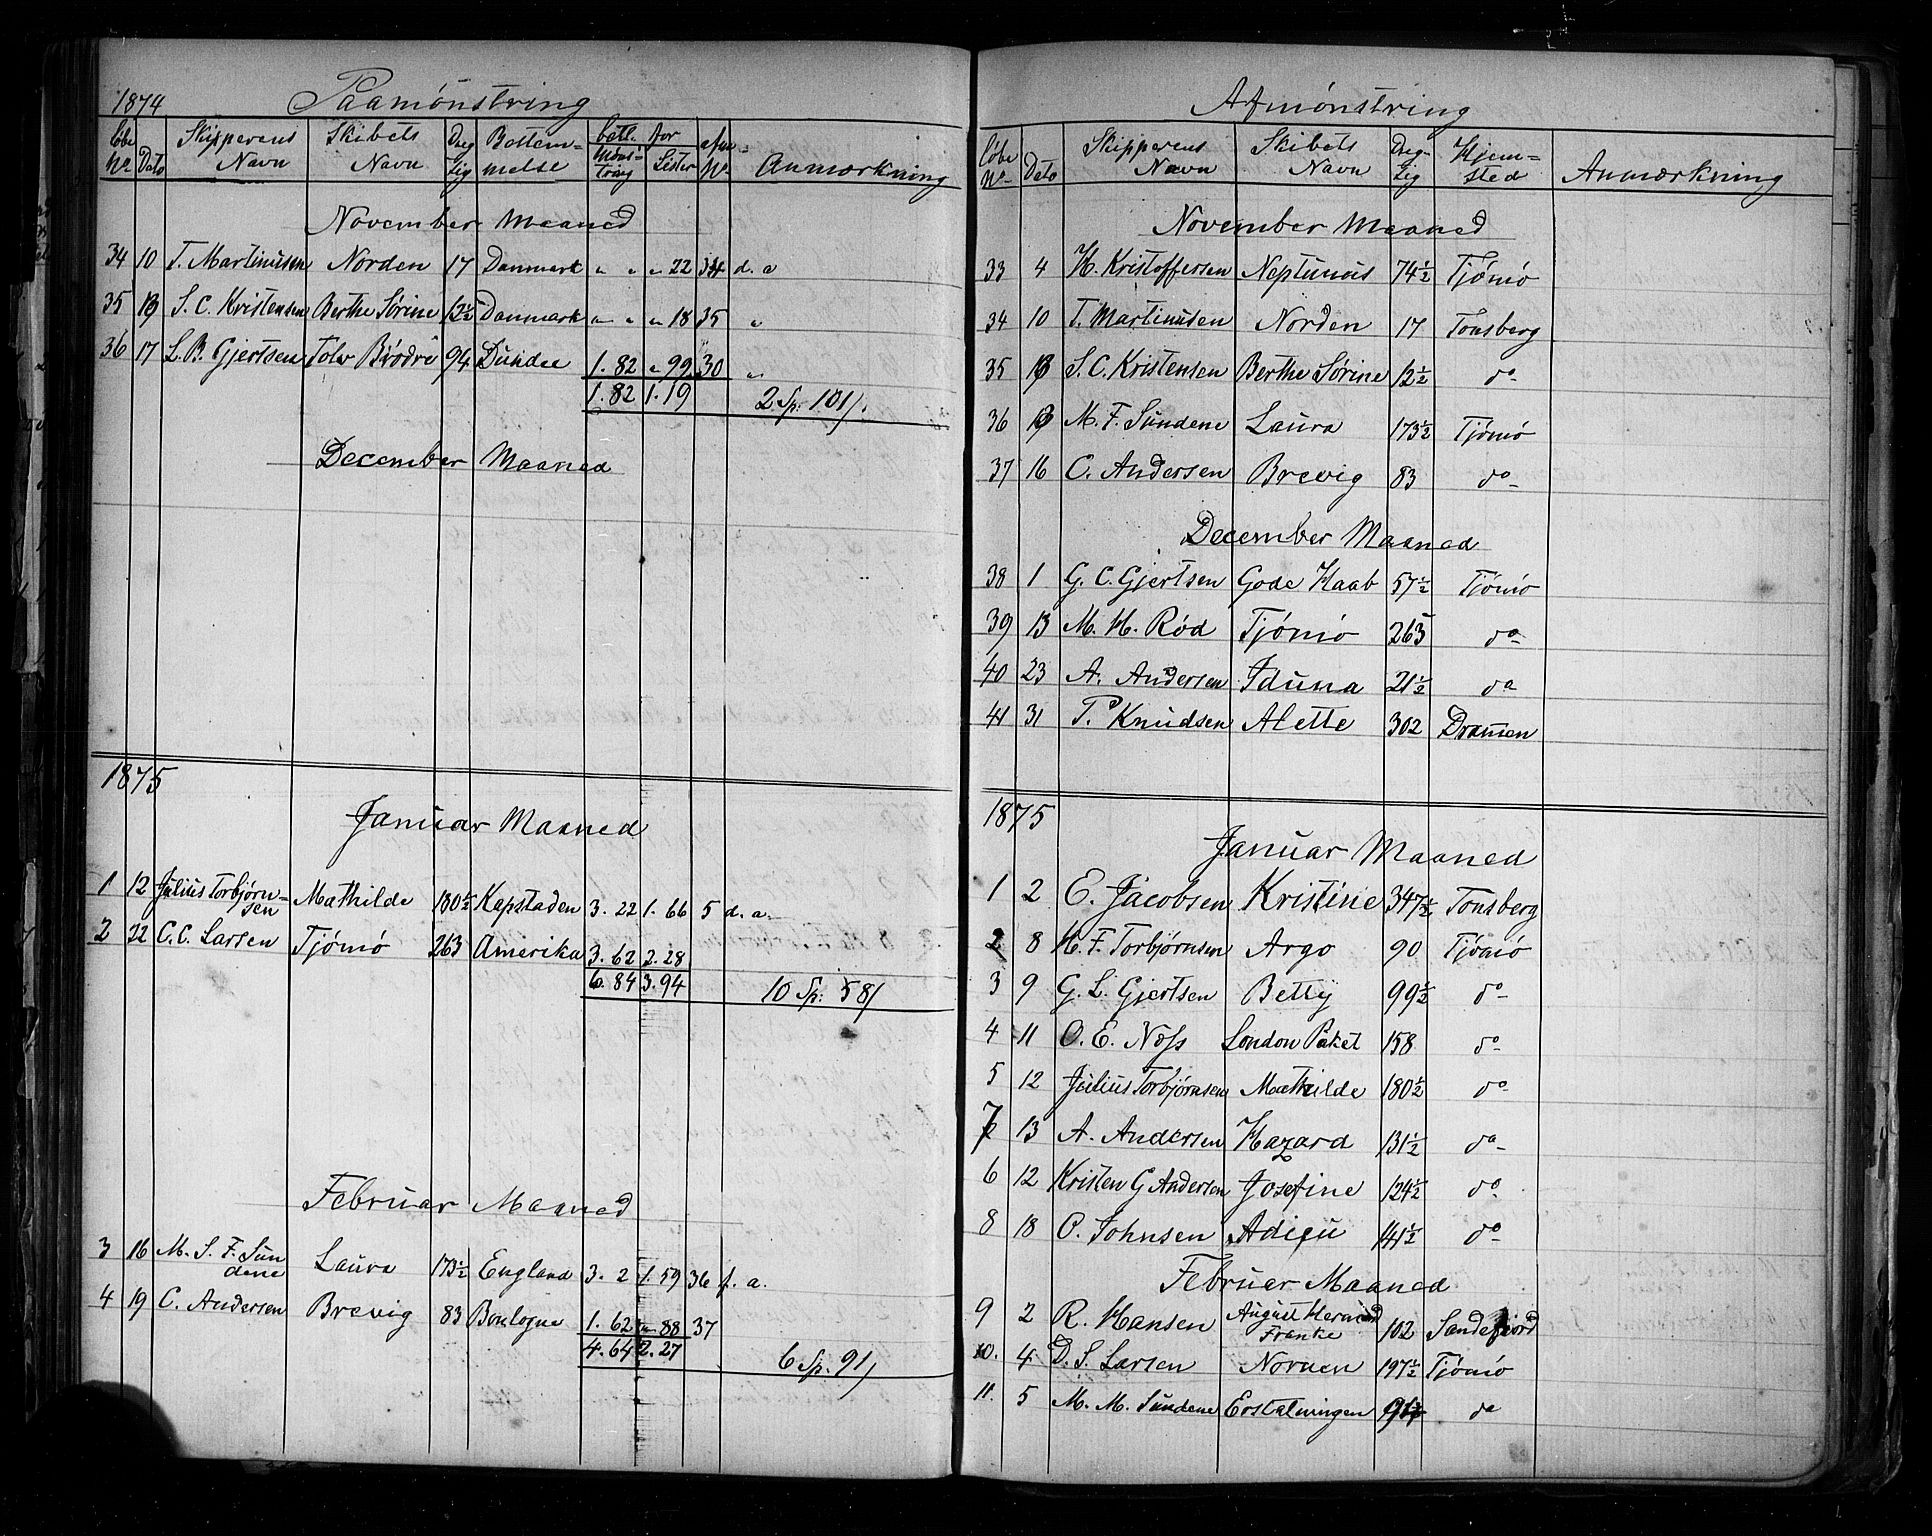 1874 Paamönstring
Löbe No Dato Skipperens Navn Skibets Navn Dreg tig Bestem- melse betl. for Möns- tring Lister No Anmærkning
November Maaned
34 10 T. Martinusen Norden 17 Danmark " " " 22 34 d. a
35 13 S. C. Kristensen Berthe Sörine 12½ Danmark " " " 18 35 "
36 17 L. B. Gjertsen Tolv Brödre 94 Dundee 1. 82 " 99 30 "
1. 82 1. 19 2 Sp. 101/.
December Maaned
1875
Januar Maaned
1 12 Julius Torbjörn-
sen Mathilde 180½ Kapstaden 3. 22 1. 66 5 d. a.
2 22 C. C. Larsen Tjömö 263 Amerika 3. 62 2. 28
6. 84 3. 94 10 Sp: 58/
Februar Maaned
3 16 M. S. F. Sun
dene Laura 173½ England 3. 2 1. 59 36 f. a.
4 19 C. Andersen Brevig 83 Boulogne 1. 62 " 88 37
4. 64 2. 27 6 Sp. 91/
Afmönstring
Löbe No Dato Skipperens Navn Skibets Navn Dreg- tig Hjem- sted Anmærkning
November Maaned
33 4 H. Kristoffersen Neptunus 74½ Tjömö
34 10 T. Martinusen Norden 17 Tonsberg
35 13 S. C. Kristensen Berthe Sörine 12½ do
36 13 M. F. Sundene Laura 173½ Tjömö
37 16 C. Andersen Brevig 83 do
December Maaned
38 1 G. C. Gjertsen Gode Haab 57½ Tjömö
39 13 M. H. Röd Tjömö 263 do
40 23 A. Andersen Iduna 21½ do
41 31 P. Knudsen Alette 302 Dramen
1875
Januar Maaned
1 2 E. Jacobsen Kristine 347½ Tonsberg
2 8 H. F. Torbjörnsen Argo 90 Tjömö
3 9 G. L. Gjertsen Betty 99½ do
4 11 O. E. Næss London Paket 158 do
5 12 Julius Torbjörnsen Mathilde 180½ do
7 13 A. Andersen Hazard 131½ do
6 12 Kristen G Andersen Josefine 124½ do
8 18 O. Johnsen Adieu 141½ do
Februar Maaned
9 2 R. Hansen August Herman
Franke 102 Sandefjord
10. 4 D. S. Larsen Nornen 197½ Tjömö
11. 5 M. M. Sundene do